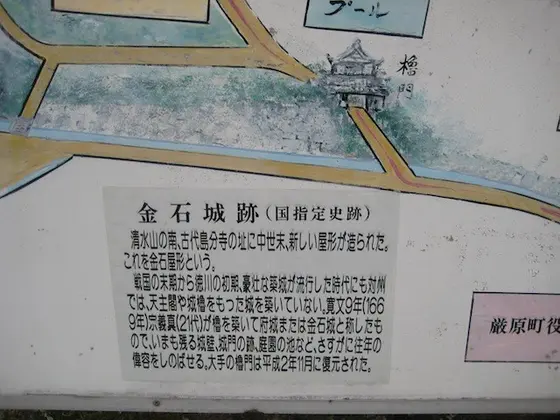 プール
櫓門
金石城跡(国指定史跡)
清水山の南、古代島分寺の址に中世末、新しい屋形が造られた。
これを金石屋形という。
戦国の末期から徳川の初期、豪壮な築城が流行した時代にも対州
では、天主閣や城櫓をもった城を築いていない。寛文9年(166
9年)宗義真(21代)が櫓を築いて府城または金石城と称したも
ので、いまも残る城壁、城門の跡、庭園の池など、さすがに往年の
偉容をしのばせる。大手の櫓門は平成2年11月に復元された。
厳原町役